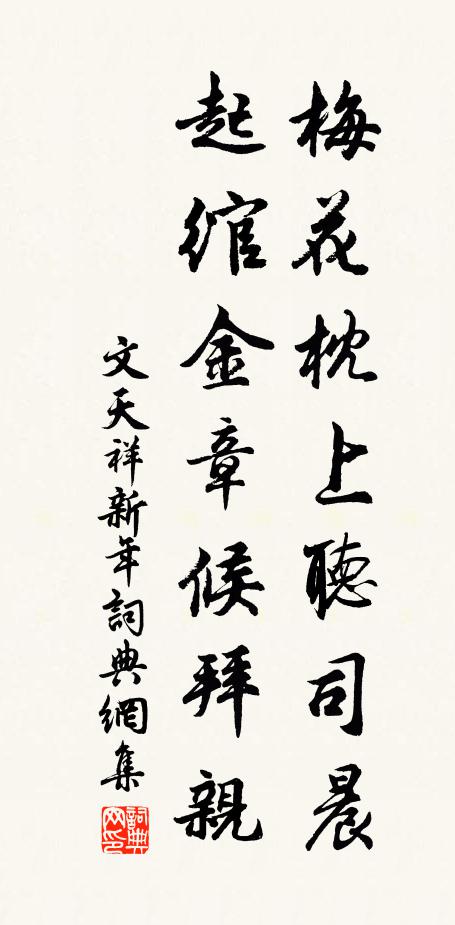 梅花枕上聽司晨
起綰金章候拜親
文天祥新年詞典網集
詞典網印